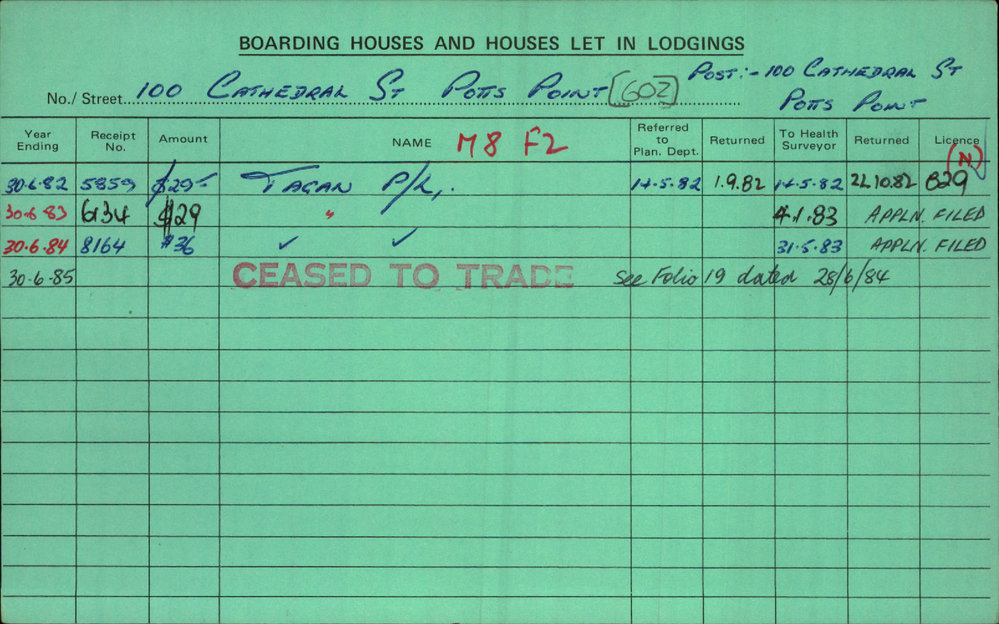 BOARDING HOUSES AND HOUSES LET IN LODGINGS
No./ Street 100 CATHEDRAL ST POTTS POINT [602] POST:- 100 CATHEDRAL ST
POTTS POINT
Year Ending Receipt No. Amount NAME M8 F2 Referred to Plan. Dept. Returned To Health Surveyor Returned Licence (N)
30.6.82 5859 $29- TAGAN P/L. 14.5.82 1.9.82 14.5.82 22.10.82 829
30.6.83 6134 $29 " 4.1.83 APPLN. FILED
30.6.84 8164 $36 ✓ ✓ 31.5.83 APPLN. FILED
30.6.85 CEASED TO TRADE See Folio 19 dated 28/6/84